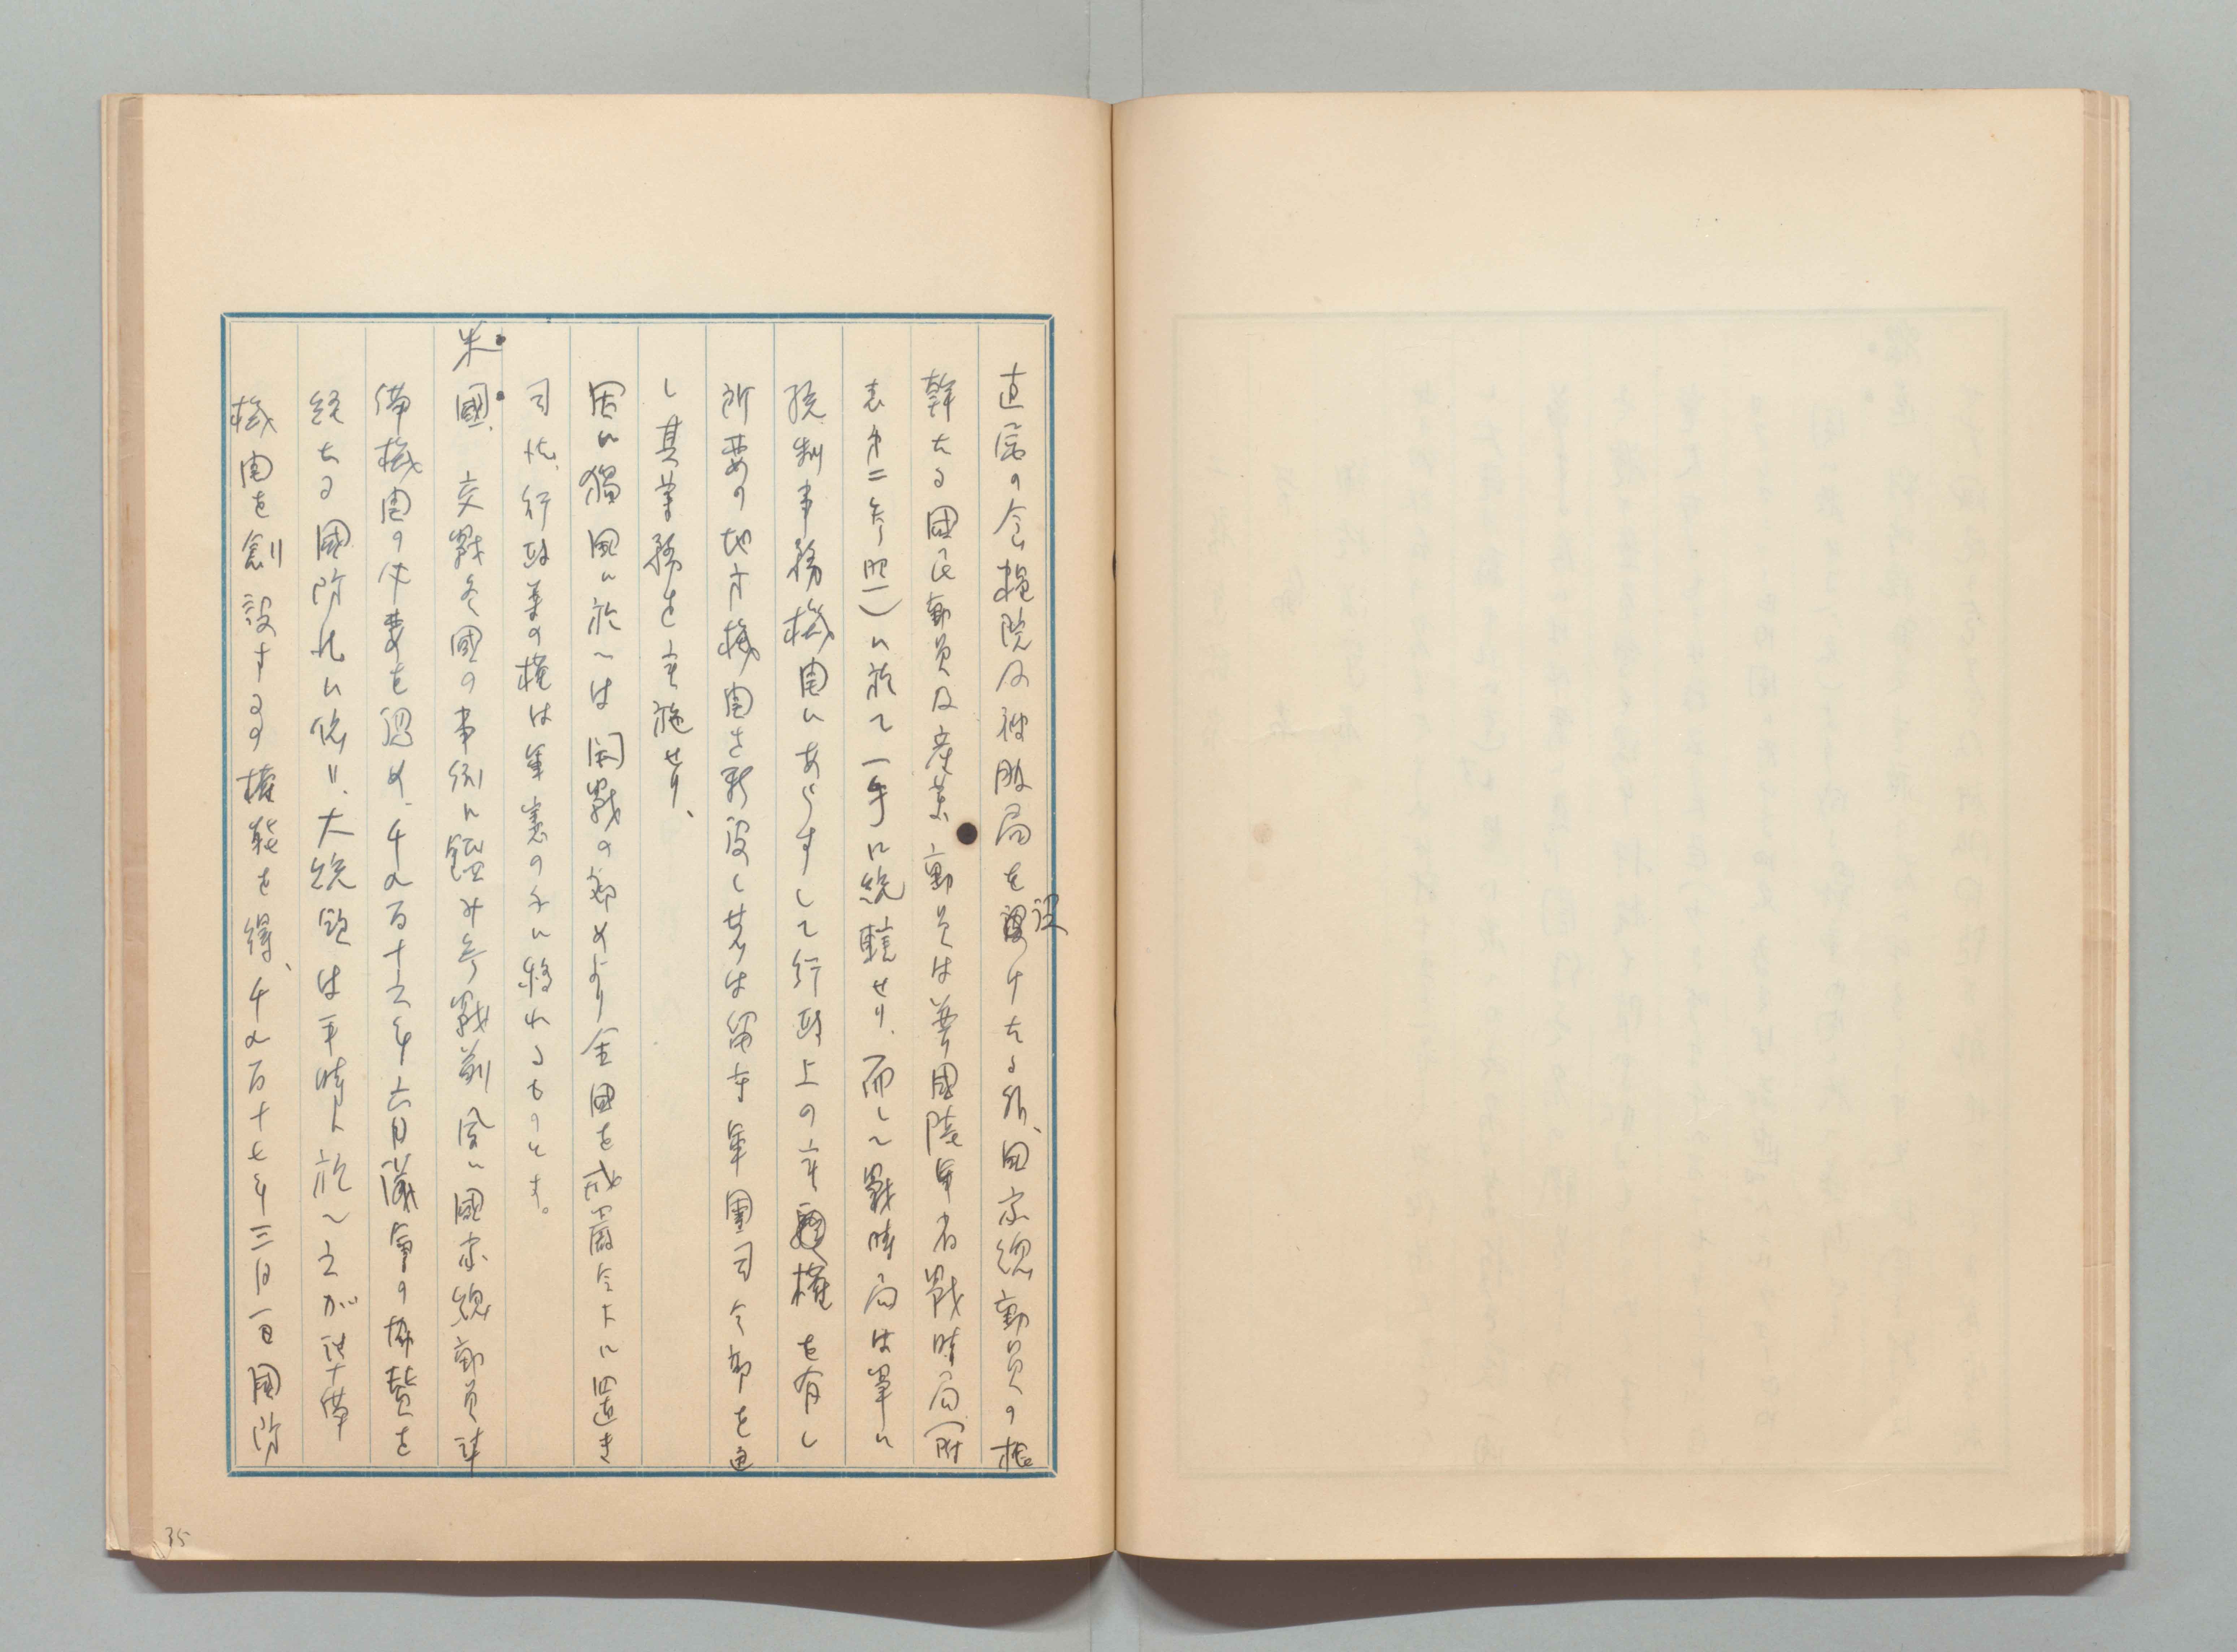 直属の食糧院及被服局を設けたる外、国家総動員の根
幹たる國民動員及産業動員は普國陸軍省戰時局(附
表第二参照)に於て一手に統轄せり、而して戰時局は單に
統制事務機関にあらずして行政上の実権を有し
所要の地方機関を新設し若は留守軍團司令部を通
し其業務を実施せり、
因に獨國に於ては開戰の初めより全國を戒嚴令下に置き
司法、行政等の権は軍憲の手に移れるものとす。
米國、交戰各國の事例に鑑み参戰前夙に國家総動員準
備機関の必要を認め、千九百十六年六月議會の協賛を
経たる國防法に依り、大統領は平時に於て之が準備
機関を創設するの権能を得、千九百十七年三月一日國防
35